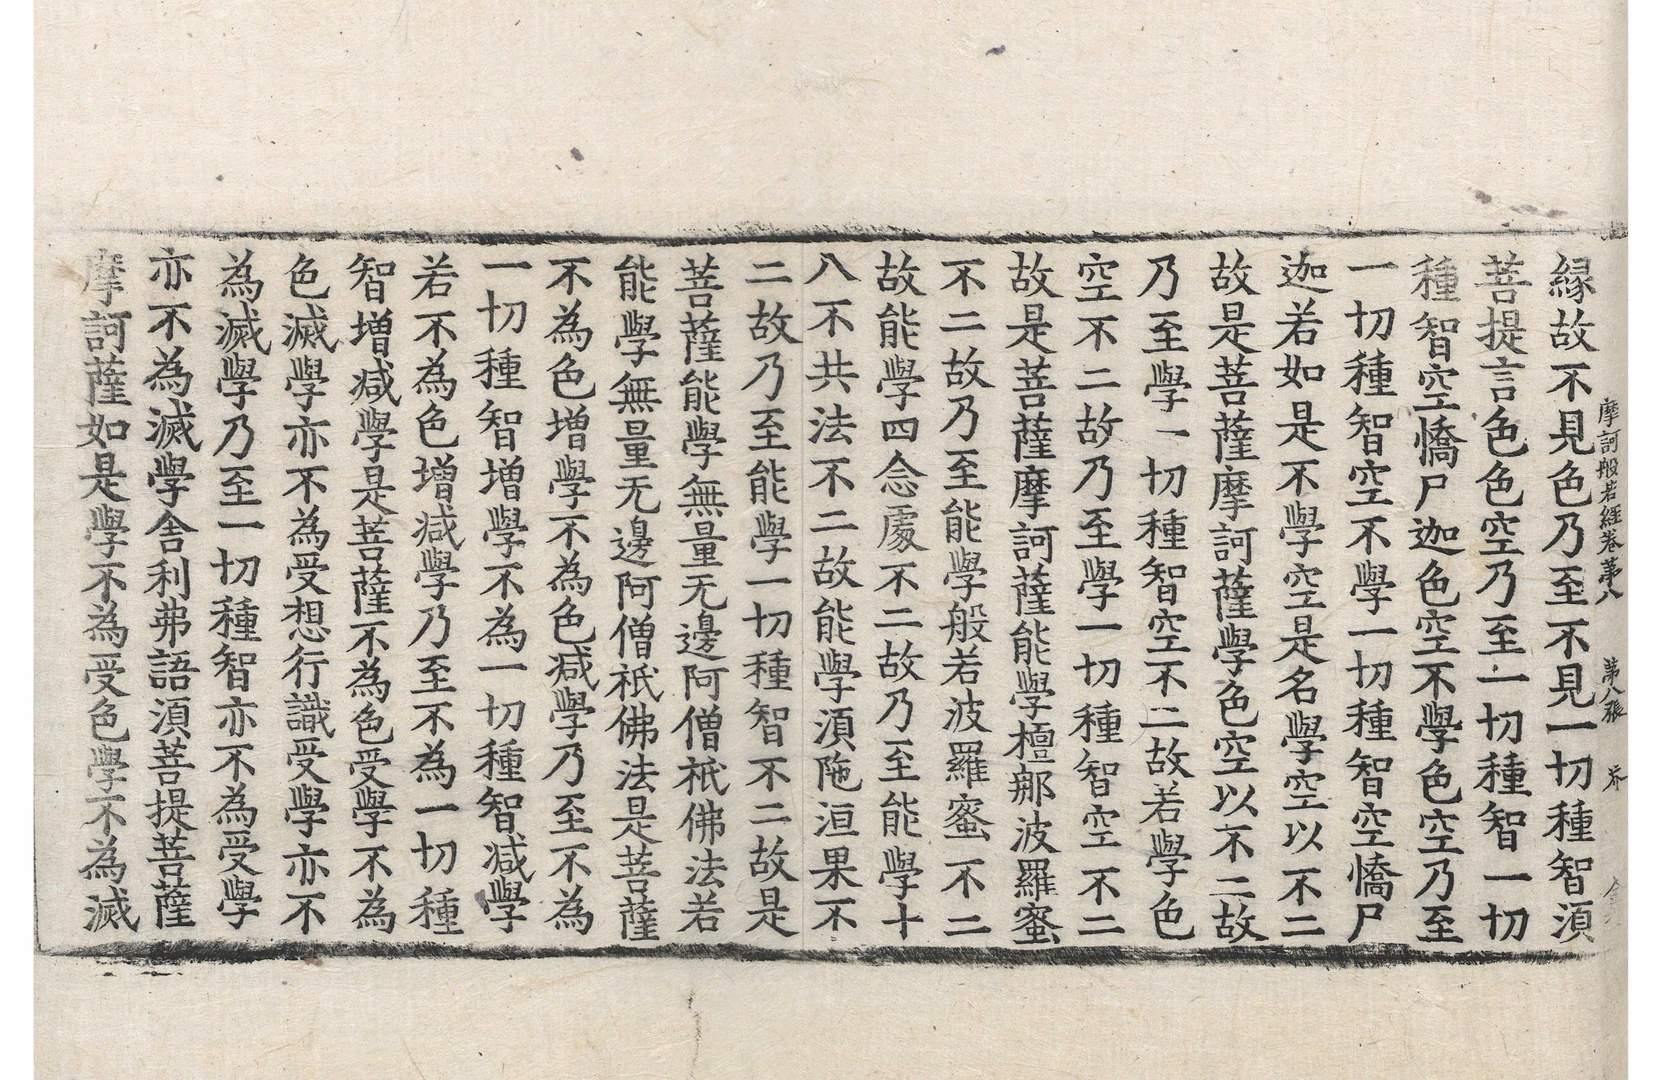 摩訶般若經卷苐八 苐八張
縁故不見色乃至不見一切種智湏
菩提言色色空乃至一切種智一切
種智空憍尸迦色空不學色空乃至
一切種智空不學一切種智空憍尸
迦若如是不學空是名學空以不二
故是菩薩摩訶薩學色空以不二故
乃至學一切種智空不二故若學色
空不二故乃至學一切種智空不二
故是菩薩摩訶薩能學檀那波羅蜜
不二故乃至能學般若波羅蜜不二
故能學四念處不二故乃至能學十
八不共法不二故能學湏陁洹果不
二故乃至能學一切種智不二故是
菩薩能學無量无邊阿僧祇佛法若
能學無量无邊阿僧祇佛法是菩薩
不為色增學不為色减學乃至不為
一切種智增學不為一切種智减學
若不為色增减學乃至不為一切種
智增减學是菩薩不為色受學不為
色滅學亦不為受想行識受學亦不
為滅學乃至一切種智亦不為受學
亦不為滅學舍利弗語湏菩提菩薩
摩訶薩如是學不為受色學不為滅